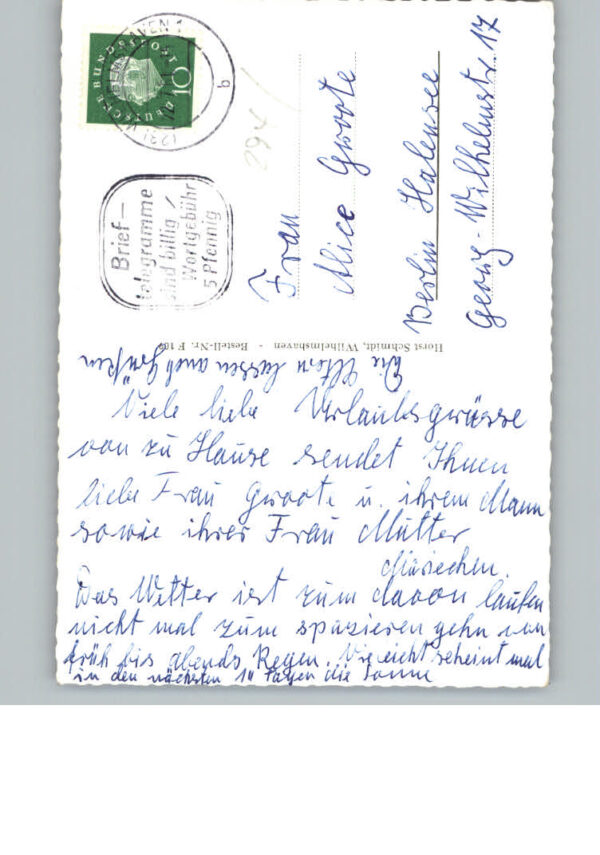 DEUTSCHE BUNDESPOST
10
b
Brief-
telegramme
sind billig
Wortgebühr
5 Pfennig
294
Frau
Alice Groote
Berlin Halensee
Georg-Wilhelmstr 17
Horst Schmidt, Wilhelmshaven - Bestell-Nr. F
Die Eltern lassen auch grüßen
Viele liebe Urlaubsgrüsse
von zu Hause sendet Ihnen
liebe Frau Groote u. ihrem Mann
sowie ihrer Frau Mutter
Mariechen.
Das Wetter ist zum davon laufen
nicht mal zum spazieren gehn von
früh bis abends Regen. Vieleicht scheint mal
in den nächsten 14 Tagen die Sonne